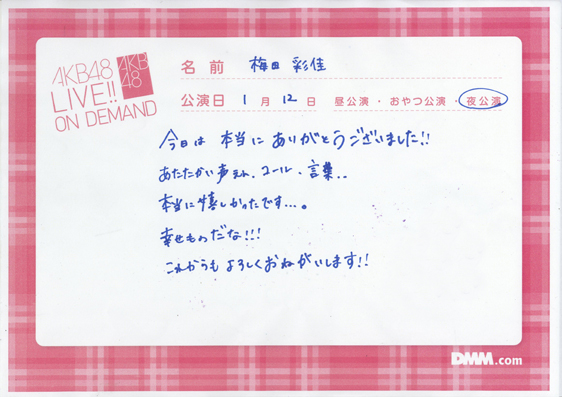 AKB48
LIVE!!
ON DEMAND
AKB
48
名前 梅田 彩佳
公演日 1月 12日 昼公演・おやつ公演・夜公演
今日は 本当に ありがとうございました!!
あたたかい声えん、コール、言葉..
本当に嬉しかったです...。
幸せものだな!!!
これからも よろしくおねがいします!!
DMM.com